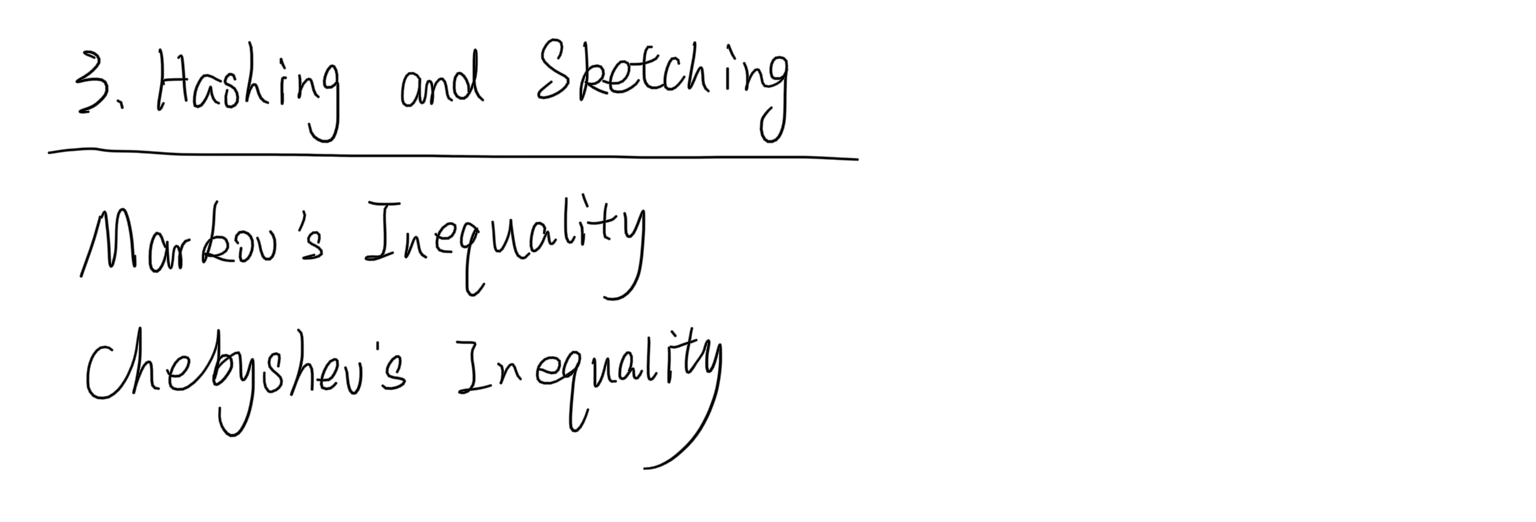 3. Hashing and Sketching
Markov's Inequality
Chebyshev's Inequality